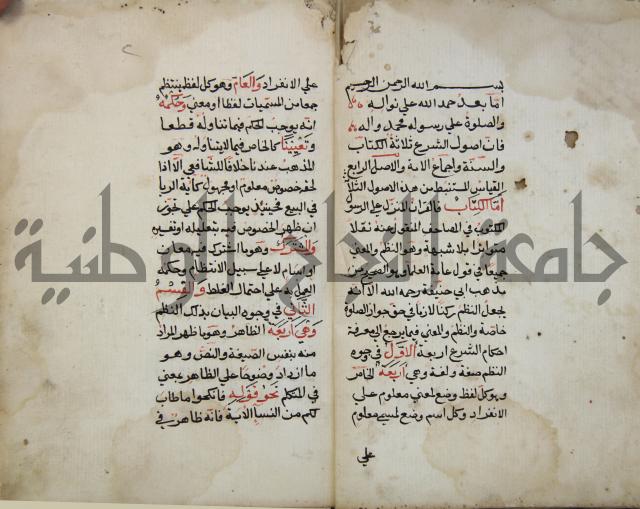 بسم الله الرحمن الرحيم
اما بعد حمد الله على نواله
والصلوة على رسوله محمد واله
فان اصول الشرع ثلاثة الكتاب
والسنة واجماع الامة والاصل الرابع
القياس المستنبط من هذه الاصول الثلاث
اما الكتاب فالقرآن المنزل على الرسول
المكتوب في المصاحف المنقول عنه نقلا
متواترا بلا شبهة وهو النظم والمعنى
جميعا في قول عامة العلماء وهو الصحيح من
مذهب ابي حنيفة رحمه الله الا انه
لم يجعل النظم ركنا لازما في حق جواز الصلوة
خاصة والنظم والمعنى فيما يرجع الى معرفة
احكام الشرع اربعة الاول في وجوه
النظم صيغة ولغة وهي اربعة الخاص
وهو كل لفظ وضع لمعنى معلوم على
الانفراد وكل اسم وضع لمسمى معلوم
على
على الانفراد والعام وهو كل لفظ ينتظم
جمعا من المسميات لفظا او معنى وحكمه
انه يوجب الحكم فيما تناوله قطعا
ويقينا كالخاص فيما يتناوله وهو
المذهب عندنا خلافا للشافعي الا اذا
لحقه خصوص معلوم او مجهول كاية الربا
في البيع فحينئذ يوجب الحكم على تجوز
ان يظهر الخصوص فيه بتعليله او تفسير
والمشترك وهو ما اشترك فيه معان
او اسام لا على سبيل الانتظام وحكمه
على احتمال الغلط والقسم
الثاني في وجوه البيان بذلك النظم
وهي اربعة الظاهر وهو ما ظهر المراد
منه بنفس الصيغة والنص وهو
ما ازداد وضوحا على الظاهر بمعنى
في المتكلم نحو قوله فانكحوا ما طاب
لكم من النسا الاية فانه ظاهر في
جامعة النجاح الوطنية